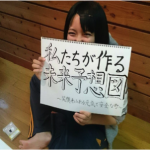 私たちが作る
未来予想図